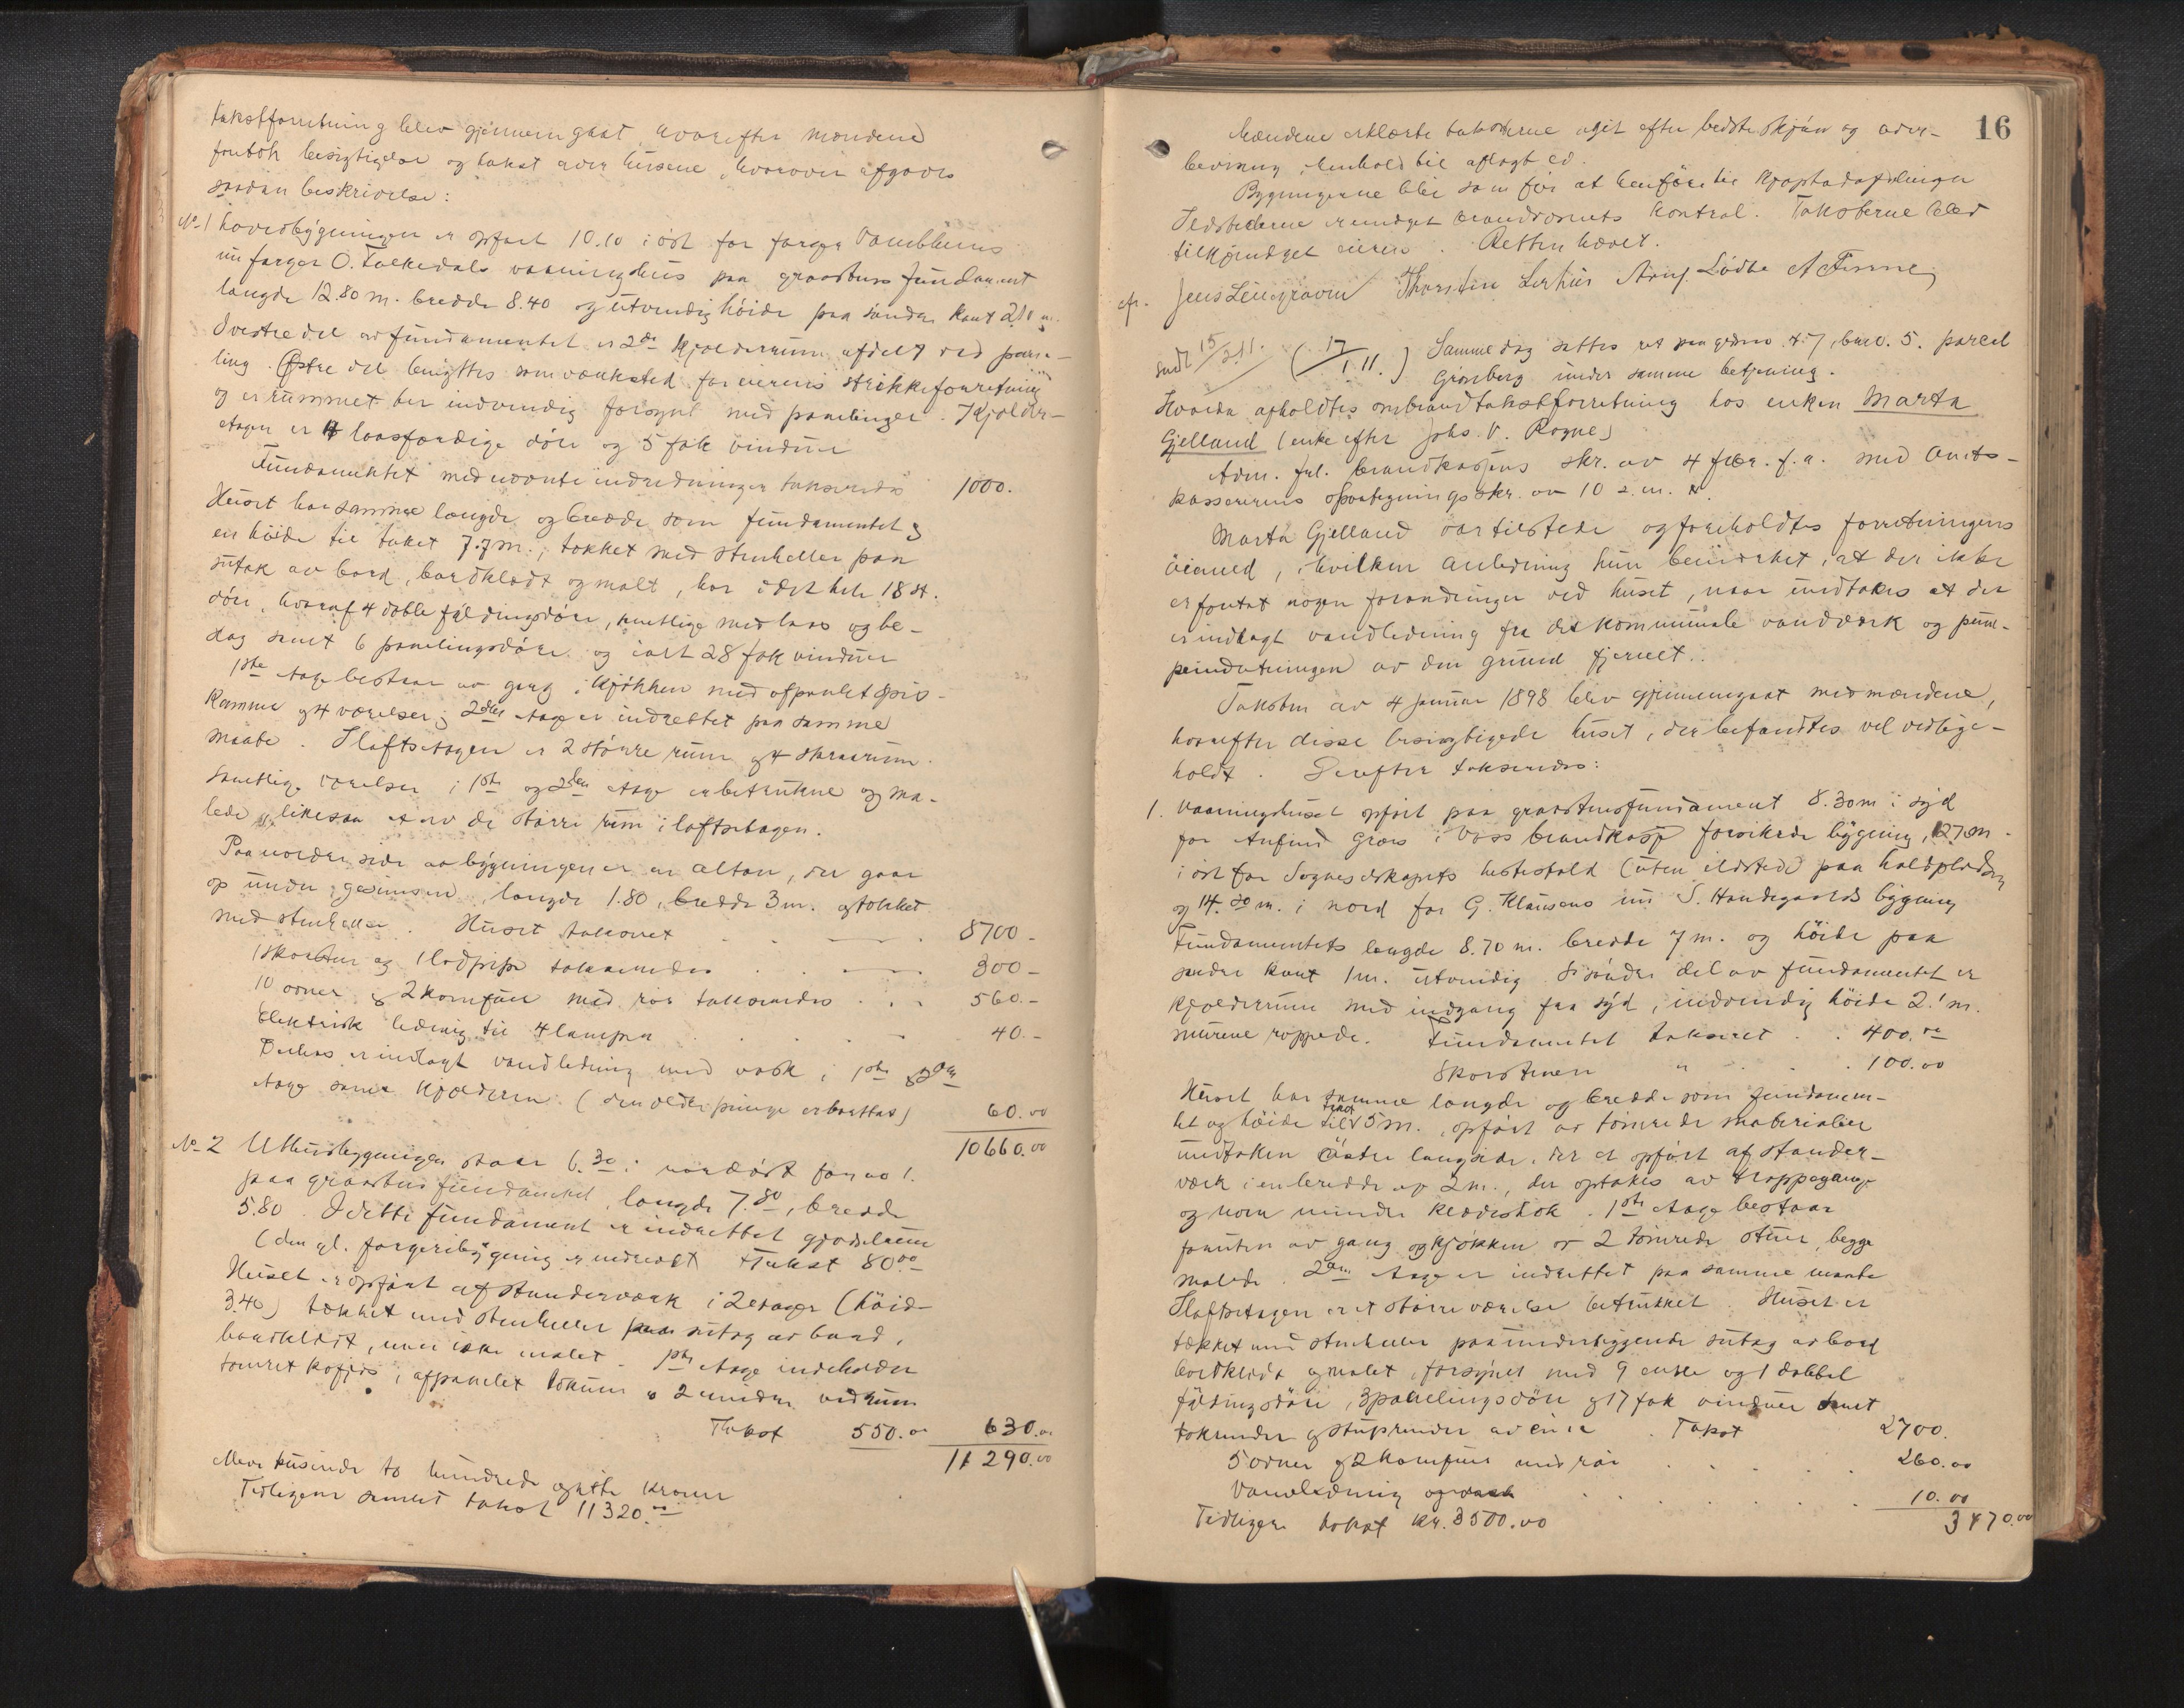 takstforretning blev gjennemgaat hvorefter mændene
foretok besigtigelse og takst over husene, hvorover afgaves
saadan beskrivelse:
No 1 Hovedbygningen er opført 10.10 i øst for farger
nu farger O. Folkedals vaaningshus paa graastens fundament
længde 12.80 m. bredde 8.40 og utvendig høide paa søndre kant 2.10 m.
I vestre del av fundamentet er 2de kjælderrum afdelt ved pane-
ling. Østre del benyttes som verksted for eierens strikkeforretning
og er rummet her indvendig forsynt med panelinger. I kjælder-
etagen er 4 laasfærdige døre og 5 fak vinduer
Fundamentet med nævnte indredninger takseredes 1000.
Huset har samme længde og bredde som fundamentet og
en høide til taket 7.7 m., tækket med stenheller paa
sutak av bord, bordklædt og malt, har i det hele 18 st.
døre, hvoraf 4 doble fyldingsdøre, samtlige med laas og be-
slag samt 6 panelingsdøre og i alt 28 fak vinduer
1ste etage bestaar av gang, kjøkken med afpanlet spis-
kammer og 4 værelser; 2den etage er indrettet paa samme
maate. I loftsetagen er 2 større rum og 4 skraarum.
Samtlige værelser i 1ste og 2den etage er betrukne og ma-
lede, likesaa et av de større rum i loftsetagen.
Paa nordre side av bygningen er en altan, der gaar
op under gesimsen, længde 1.80, bredde 3 m. og tækket
med stenheller. Huset taksert 8700 -
1 skorsten og 1 lodpipe takseredes 300 -
10 ovner og 2 komfurer med rør takseredes 560.-
Elektrisk ledning til 4 lamper 40.-
Derhos er indlagt vandledning med vask i 1ste og 2den
etage samt kjælderen. (den ældre pumpe er borttat) 60.00
10660.00
No 2 Uthusbygningen staar 6.30 i nordøst for no 1.
paa graastens fundament, længde 7.80, bredde
5.80. I dette fundament er indrettet gjødselrum
(den gl. fargeribygning er nedrevet) Takst 80.00
Huset er opført af stænderværk i 2 etager (høide
3.40) tækket med stenheller paa sutag av bord,
bordklædt, men ikke malet. 1ste etage indeholder
tømret kofjøs, afpanlet og 2 mindre vedrum
Takst 550.00 630.00
11 290.00
elleve tusinde to hundrede og nitti kroner
Tidligere samlet takst 11320.00
16
Mændene erklærte taksterne avgit efter bedste skjøn og over-
bevisning i henhold til aflagt ed.
Bygningerne blir som før at henføre til
Ildstederne er undergit brandvæsnets kontrol. Taksterne blev
tilkjendegit eieren. Retten hævet.
Jens Leiegraven Thorstein Lirhus A Finne
sendt 15/2 11. (17/1 11.) Samme dag sattes ret paa gdsno 47, brno. 5. parcel
Grønberg under samme betjening.
Hvorda afholdtes ombrandtakstforretning hos enken Marta
Gjelland (enke efter Johs. V. Rogne)
Adm. frl. brandkassens skr. av 4 febr. f.a. med amts-
kassererens paategningsskr. av 10 s.m.
Marta Gjelland var tilstede og foreholdtes forretningens
øiemed, i hvilken anledning hun bemerket, at der ikke
er foretat nogen forandringer ved huset, naar undtakes at der
er indlagt vandledning fra det kommunale vandverk og pum-
peindretningen av den grund fjernet.
Taksten av 4 januar 1898 blev gjennemgaat med mændene,
hvorefter disse besigtigede huset, der befandtes vel vedlige-
holdt. Derefter takseredes:
1. Vaaningshuset opført paa graastensfundament 8.30 m i syd
for Anfind Græs i Voss brandkasse forsikrede bygning, 12.70 m
i øst for Sogneselskapets hestestald (uten ildsted) paa holdpladsen
og 14.20 m. i nord for G. Klausens nu S. Handegaards bygning
Fundamentets længde 8.70 m. bredde 7 m. og høide paa
søndre kant 1 m. utvendig. I søndre del av fundamentet er
kjælderrum med indgang fra syd, indvendig høide 2.1 m.
murene rappede. Fundamentet taksert 400.00
Skorstenen " 100.00
Huset har samme længde og bredde som fundamen-
tet og høide til taket 5 m., opført av tømrede materialer
undtaken østre langside, der er opført af stænder-
værk i en bredde af 2 m., der optakes av trappegang
og noen mindre klædeskot. 1ste etage bestaar
foruten av gang og kjøkken av 2 tømrede stuer, begge
malede. 2den etage er indrettet paa samme maate
I loftsetagen er et større værelse betrukket. Huset er
tækket med stenheller paa underliggende sutag av bord
bordklædt og malet, forsynet med 9 enkle og 1 dobbel
fyldingsdøre, 3 panelingsdøre og 17 fak vinduer samt
takrender og stuprender av Takst 2700.
5 ovner og 2 komfurer med rør 260.00
Vandledning og vask 10.00
Tidligere takst kr. 3500.00 3470.00